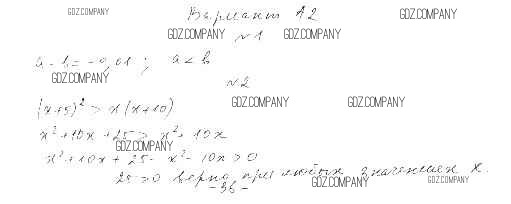 GDZ.COMPANY Вариант А2 GDZ.COMPANY
№1
GDZ.COMPANY GDZ.COMPANY
a - b = -0,01 ; a < b
GDZ.COMPANY
№2
(x+5)² > x(x+10)
GDZ.COMPANY GDZ.COMPANY
x² + 10x + 25 > x² + 10x
GDZ.COMPANY
x² + 10x + 25 - x² - 10x > 0
25 > 0 верно при любых значениях x.
GDZ.COMPANY GDZ.COMPANY
- 36 -